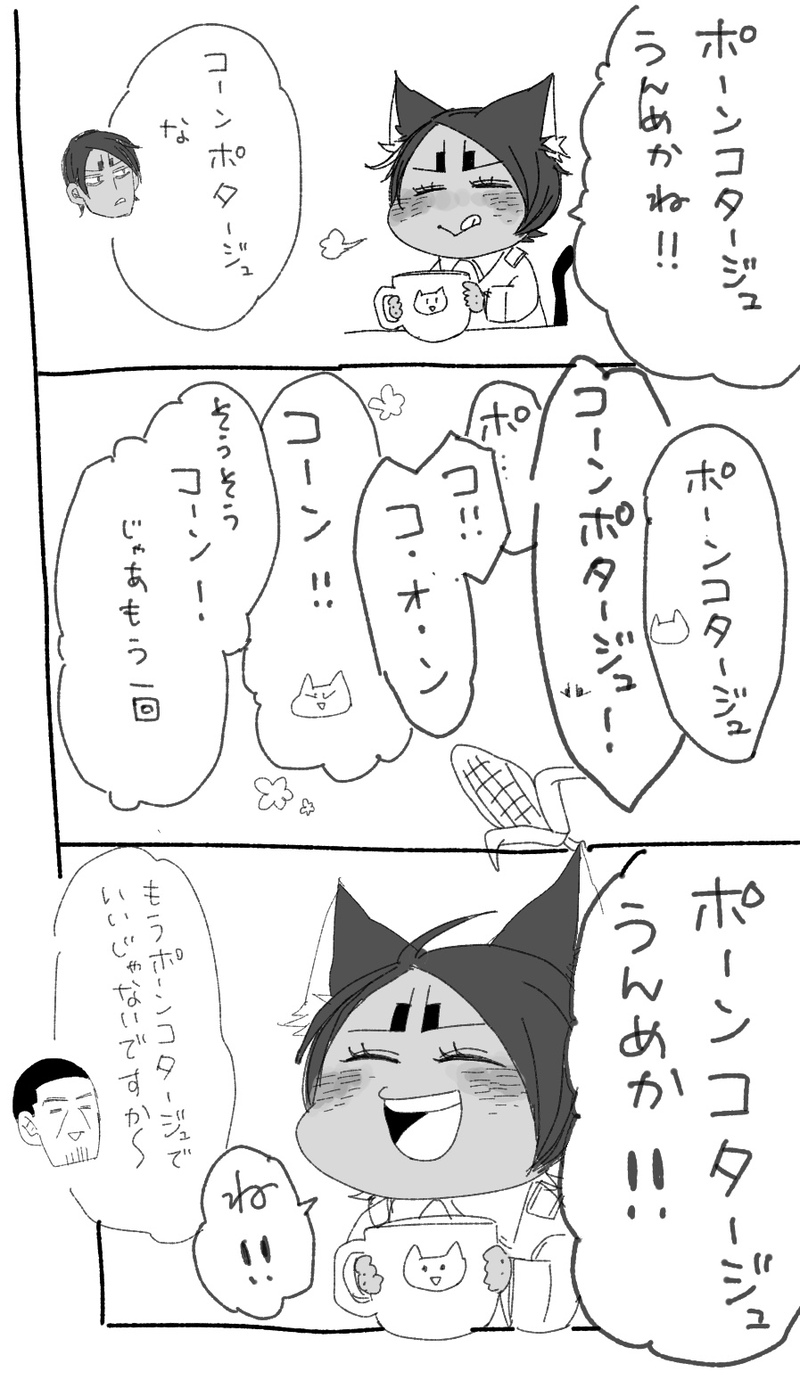 ポーンコタージュ
うんめかね!!
コーンポタージュ
な
ポーンコタージュ
コーンポタージュー!
ポ…
コ!!
コ・オ・ン
コーン!!
そうそう
コーン!
じゃあもう一回
ポーンコタージュ
うんめか!!
ね!!
もうポーンコタージュで
いいじゃないですか〜